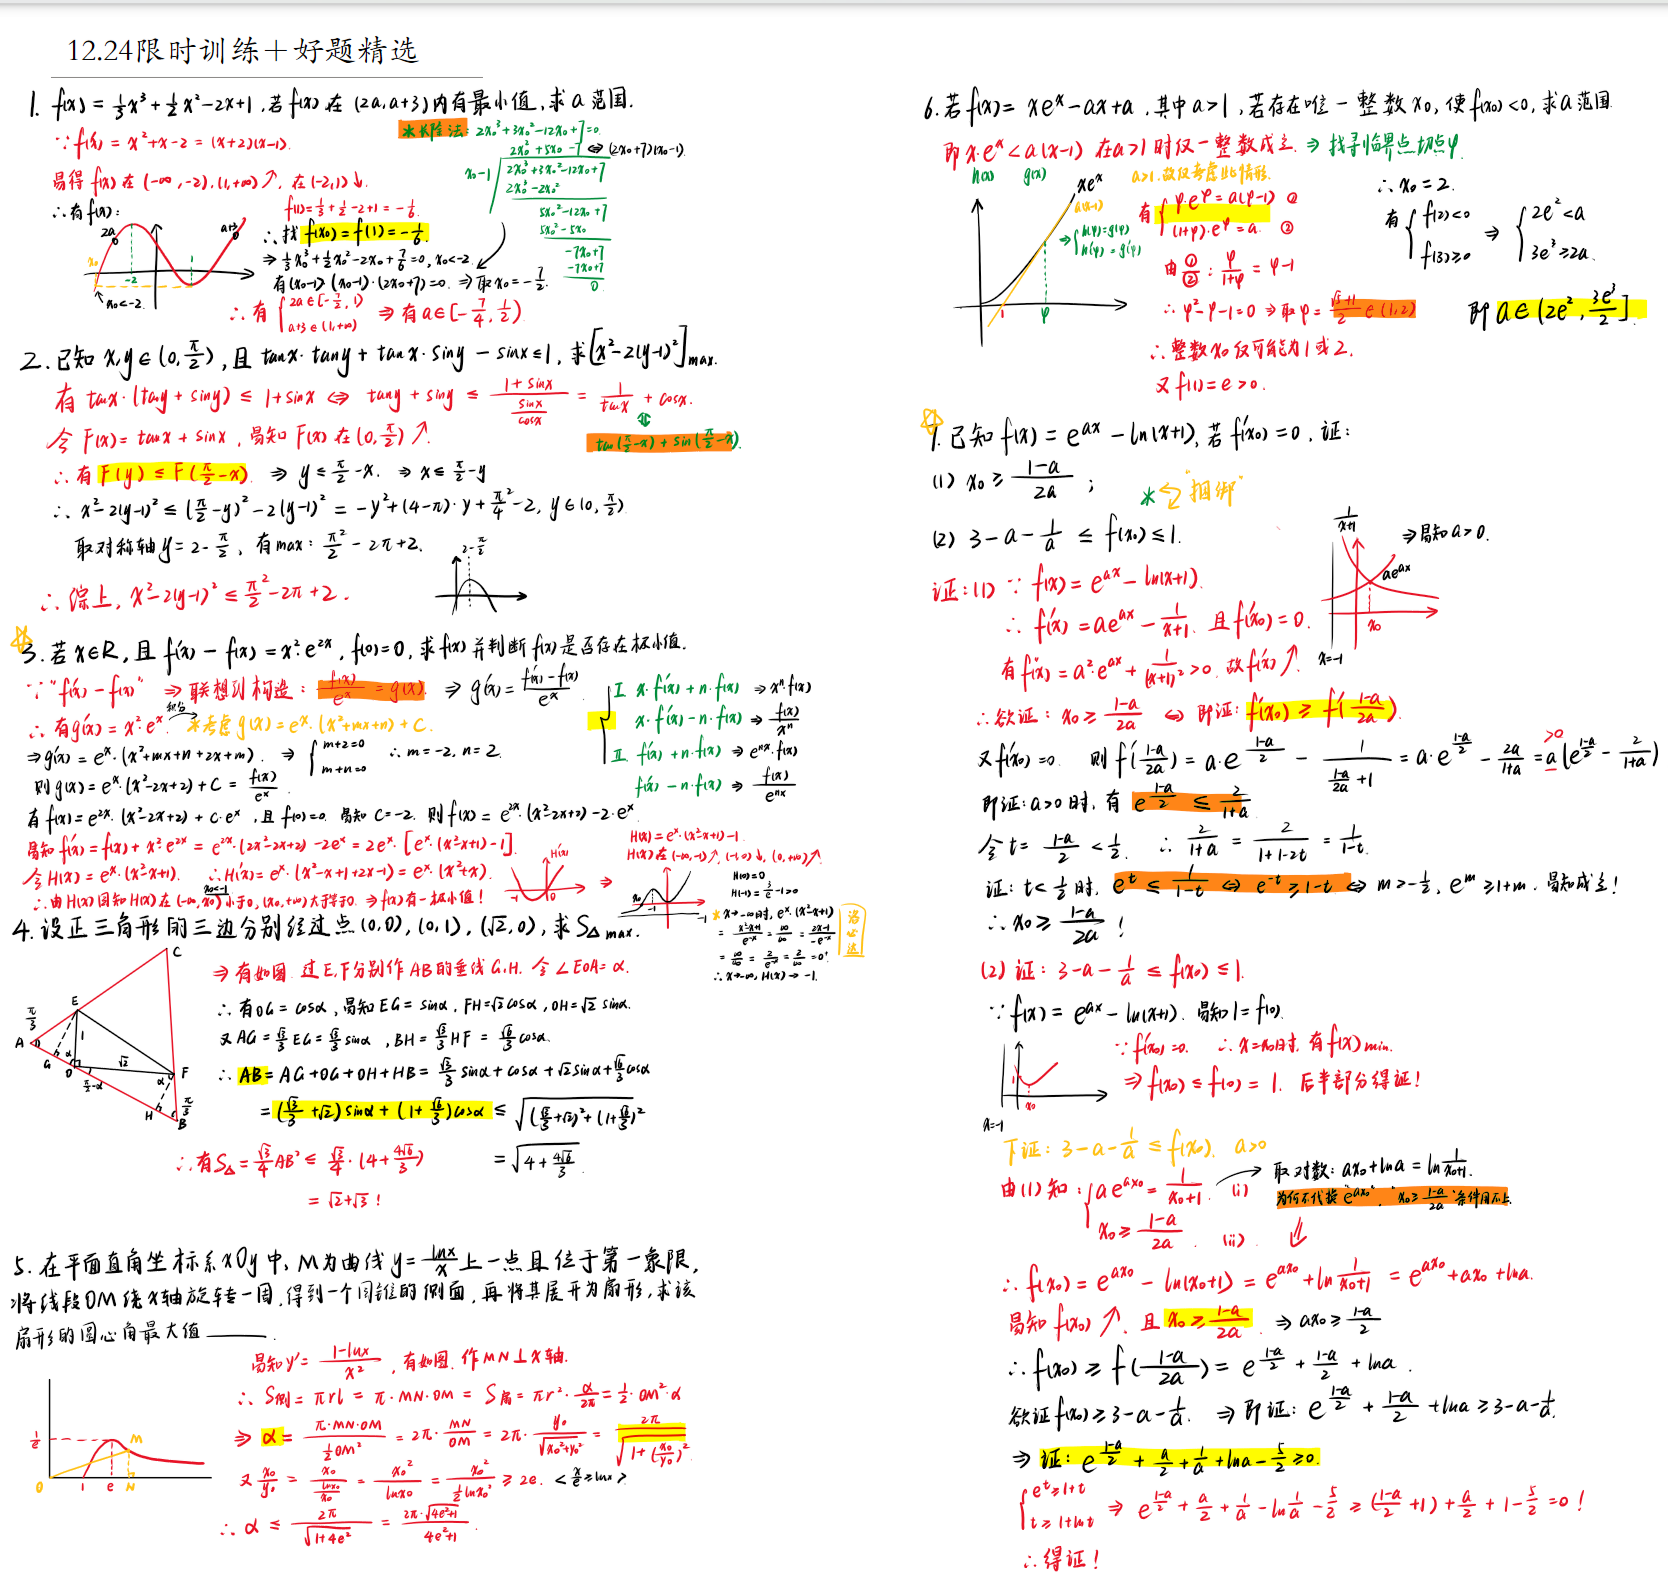 12.24限时训练+好题精选
1. f(x) = 1/3x³ + 1/2x² - 2x + 1, 若f(x)在(2a, a+3)内有最小值, 求a范围.
∵ f'(x) = x² + x - 2 = (x+2)(x-1).
易得f(x)在(-∞,-2), (1,+∞)↗, 在(-2,1)↓.
∴有f(x):
2a
a+3
x₀
-2
1
x₀<-2.
f(1) = 1/3 + 1/2 - 2 + 1 = -1/6.
∴找f(x₀) = f(1) = -1/6.
⇒ 1/3x₀³ + 1/2x₀² - 2x₀ + 7/6 = 0, x₀<-2.
有(x₀-1)(x₀-1)·(2x₀+7)=0. ⇒取x₀ = -7/2.
∴有{2a∈[-7/2, 1) a+3∈(1,+∞) ⇒有a∈[-7/4, 1/2)
*长除法: 2x₀³+3x₀²-12x₀+7=0.
2x₀²+5x₀-7 ⇔ (2x₀+7)(x₀-1)
x₀-1 2x₀³+3x₀²-12x₀+7
2x₀³-2x₀²
5x₀²-12x₀+7
5x₀²-5x₀
-7x₀+7
-7x₀+7
0
2. 已知x,y∈(0, π/2), 且tanx·tany + tanx·siny - sinx ≤ 1, 求[x²-2(y-1)²]max.
有tanx·(tany+siny) ≤ 1+sinx ⇔ tany+siny ≤ (1+sinx)/(sinx/cosx) = 1/tanx + cosx.
令F(x) = tanx + sinx, 易知F(x)在(0, π/2)↗.
tan(π/2-x)+sin(π/2-x).
∴有F(y) ≤ F(π/2-x) ⇒ y ≤ π/2-x. ⇒ x ≤ π/2-y
∴ x²-2(y-1)² ≤ (π/2-y)² - 2(y-1)² = -y²+(4-π)·y + π²/4 - 2, y∈(0, π/2).
取对称轴y = 2-π/2, 有max: π²/2 - 2π + 2.
2-π/2
∴综上, x²-2(y-1)² ≤ π²/2 - 2π + 2.
3. 若x∈R, 且f'(x) - f(x) = x²·e^{2x}, f(0)=0, 求f(x)并判断f(x)是否存在极小值.
∵"f'(x)-f(x)" ⇒联想到构造: f(x)/e^x = g(x). ⇒ g'(x) = (f'(x)-f(x))/e^x
∴有g'(x) = x²·e^x 积分 *考虑g(x) = e^x·(x²+mx+n)+C.
⇒g'(x) = e^x·(x²+mx+n+2x+m). ⇒ {m+2=0 m+n=0 ∴m=-2, n=2.
则g(x) = e^x·(x²-2x+2)+C = f(x)/e^x
I x·f'(x)+n·f(x) ⇒ x^n·f(x)
x·f'(x)-n·f(x) ⇒ f(x)/x^n
II f'(x)+n·f(x) ⇒ e^{nx}·f(x)
f'(x)-n·f(x) ⇒ f(x)/e^{nx}
有f(x) = e^{2x}·(x²-2x+2)+C·e^x, 且f(0)=0. 易知C=-2. 则f(x) = e^{2x}·(x²-2x+2)-2·e^x.
易知f'(x) = f(x)+x²·e^{2x} = e^{2x}·(2x²-2x+2)-2e^x = 2e^x·[e^x·(x²-x+1)-1].
令H(x) = e^x·(x²-x+1). ∴H'(x) = e^x·(x²-x+1+2x-1) = e^x·(x²+x).
x₀<-1
∴由H(x)图知H(x)在(-∞,x₀)小于0, (x₀,+∞)大于等于0 ⇒ f(x)有一极小值!
H'(x)
-1 0
H(x) = e^x·(x²-x+1)-1.
H(x)在(-∞,-1)↗, (-1,0)↓, (0,+∞)↗
H(0)=0
H(-1) = 3/e - 1 > 0
x₀ -1 -1
*x→-∞时, e^x·(x²-x+1)
= (x²-x+1)/e^{-x} = ∞/∞ = (2x-1)/(-e^{-x})
= ∞/∞ = 2/e^{-x} = 2/∞ = 0⁺
∴x→-∞, H(x)→-1.
洛必达
4. 设正三角形的三边分别经过点(0,0), (0,1), (√2,0), 求S△max.
C
E
π/3
A
1
G
α
O
√2
π/2-α
α
F
H
π/3
B
⇒有如图. 过E,F分别作AB的垂线G,H. 令∠EOA=α.
∴有OG=cosα, 易知EG=sinα, FH=√2cosα, OH=√2sinα.
又AG = √3/3EG = √3/3sinα, BH = √3/3HF = √6/3cosα.
∴AB = AG+OG+OH+HB = √3/3sinα+cosα+√2sinα+√6/3cosα
= (√3/3+√2)sinα+(1+√6/3)cosα ≤ √((√3/3+√2)²+(1+√6/3)²)
= √(4+4√6/3).
∴有S△ = √3/4AB² ≤ √3/4·(4+4√6/3)
= √2+√3!
5. 在平面直角坐标系xOy中, M为曲线y=lnx/x上一点且位于第一象限,
将线段OM绕x轴旋转一周, 得到一个圆锥的侧面, 再将其展开为扇形, 求该
扇形的圆心角最大值______.
1/e
M
O 1 e N
易知y' = (1-lnx)/x², 有如图. 作MN⊥x轴.
∴ S侧 = πrl = π·MN·OM = S扇 = πr²·α/2π = 1/2·OM²·α
⇒ α = π·MN·OM/(1/2OM²) = 2π·MN/OM = 2π·y₀/√(x₀²+y₀²) = 2π/√(1+(x₀/y₀)²)
又x₀/y₀ = x₀/(lnx₀/x₀) = x₀²/lnx₀ = x₀²/(1/2lnx₀²) ≥ 2e. <x/e ≥ lnx>
∴ α ≤ 2π/√(1+4e²) = 2π·√(4e²+1)/(4e²+1).
6. 若f(x) = xe^x - ax + a, 其中a>1, 若存在唯一整数x₀, 使f(x₀)<0, 求a范围
即x·e^x < a(x-1) 在a>1时仅一整数成立. ⇒找寻临界点切点φ.
h(x) g(x)
xe^x
a(x-1)
1 φ
a>1. 故仅考虑此情形.
⇒{h(φ)=g(φ) h'(φ)=g'(φ)
有{φ·e^φ=a(φ-1) ① (1+φ)·e^φ=a. ②
由①/②: φ/(1+φ) = φ-1
∴φ²-φ-1=0 ⇒取φ = (√5+1)/2 ∈(1,2)
∴整数x₀仅可能为1或2.
又f(1)=e>0.
∴x₀=2.
有{f(2)<0 f(3)≥0 ⇒ {2e²<a 3e³≥2a.
即a∈(2e², 3e³/2].
7. 已知f(x) = e^{ax} - ln(x+1), 若f'(x₀)=0, 证:
(1) x₀ ≥ (1-a)/2a;
* "捆绑"
(2) 3-a-1/a ≤ f(x₀) ≤ 1.
1/(x+1)
⇒易知a>0.
ae^{ax}
x₀
x=-1
证:(1) ∵ f(x) = e^{ax} - ln(x+1).
∴ f'(x) = ae^{ax} - 1/(x+1). 且f'(x₀)=0.
有f''(x) = a²·e^{ax} + 1/(x+1)² > 0. 故f'(x)↗.
∴欲证: x₀ ≥ (1-a)/2a ⇔ 即证: f'(x₀) ≥ f'((1-a)/2a).
又f'(x₀)=0. 则f'((1-a)/2a) = a·e^{(1-a)/2} - 1/((1-a)/2a+1) = a·e^{(1-a)/2} - 2a/(1+a) = a(e^{(1-a)/2} - 2/(1+a))
>0
即证: a>0时, 有e^{(1-a)/2} ≤ 2/(1+a)
令t = (1-a)/2 < 1/2. ∴ 2/(1+a) = 2/(1+1-2t) = 1/(1-t).
证: t<1/2时, e^t ≤ 1/(1-t) ⇔ e^{-t} ≥ 1-t ⇔ m>-1/2, e^m ≥ 1+m. 易知成立!
∴ x₀ ≥ (1-a)/2a!
(2) 证: 3-a-1/a ≤ f(x₀) ≤ 1.
∵ f(x) = e^{ax} - ln(x+1). 易知1=f(0).
1
x₀
x=-1
∵f'(x₀)=0. ∴x=x₀时, 有f(x)min.
⇒f(x₀) ≤ f(0) = 1. 后半部分得证!
下证: 3-a-1/a ≤ f(x₀). a>0
由(1)知: {ae^{ax₀} = 1/(x₀+1). (i) x₀ ≥ (1-a)/2a. (ii)
取对数: ax₀+lna = ln1/(x₀+1).
为何不代换"e^{ax₀}", "x₀≥(1-a)/2a"条件用不上.
∴f(x₀) = e^{ax₀} - ln(x₀+1) = e^{ax₀}+ln1/(x₀+1) = e^{ax₀}+ax₀+lna.
易知f(x₀)↗, 且x₀ ≥ (1-a)/2a. ⇒ ax₀ ≥ (1-a)/2
∴f(x₀) ≥ f((1-a)/2a) = e^{(1-a)/2}+(1-a)/2+lna.
欲证f(x₀) ≥ 3-a-1/a. ⇒即证: e^{(1-a)/2}+(1-a)/2+lna ≥ 3-a-1/a.
⇒证: e^{(1-a)/2}+a/2+1/a+lna-5/2 ≥ 0.
{e^t≥1+t t≥1+lnt ⇒ e^{(1-a)/2}+a/2+1/a-ln1/a-5/2 ≥ ((1-a)/2+1)+a/2+1-5/2=0!
∴得证!